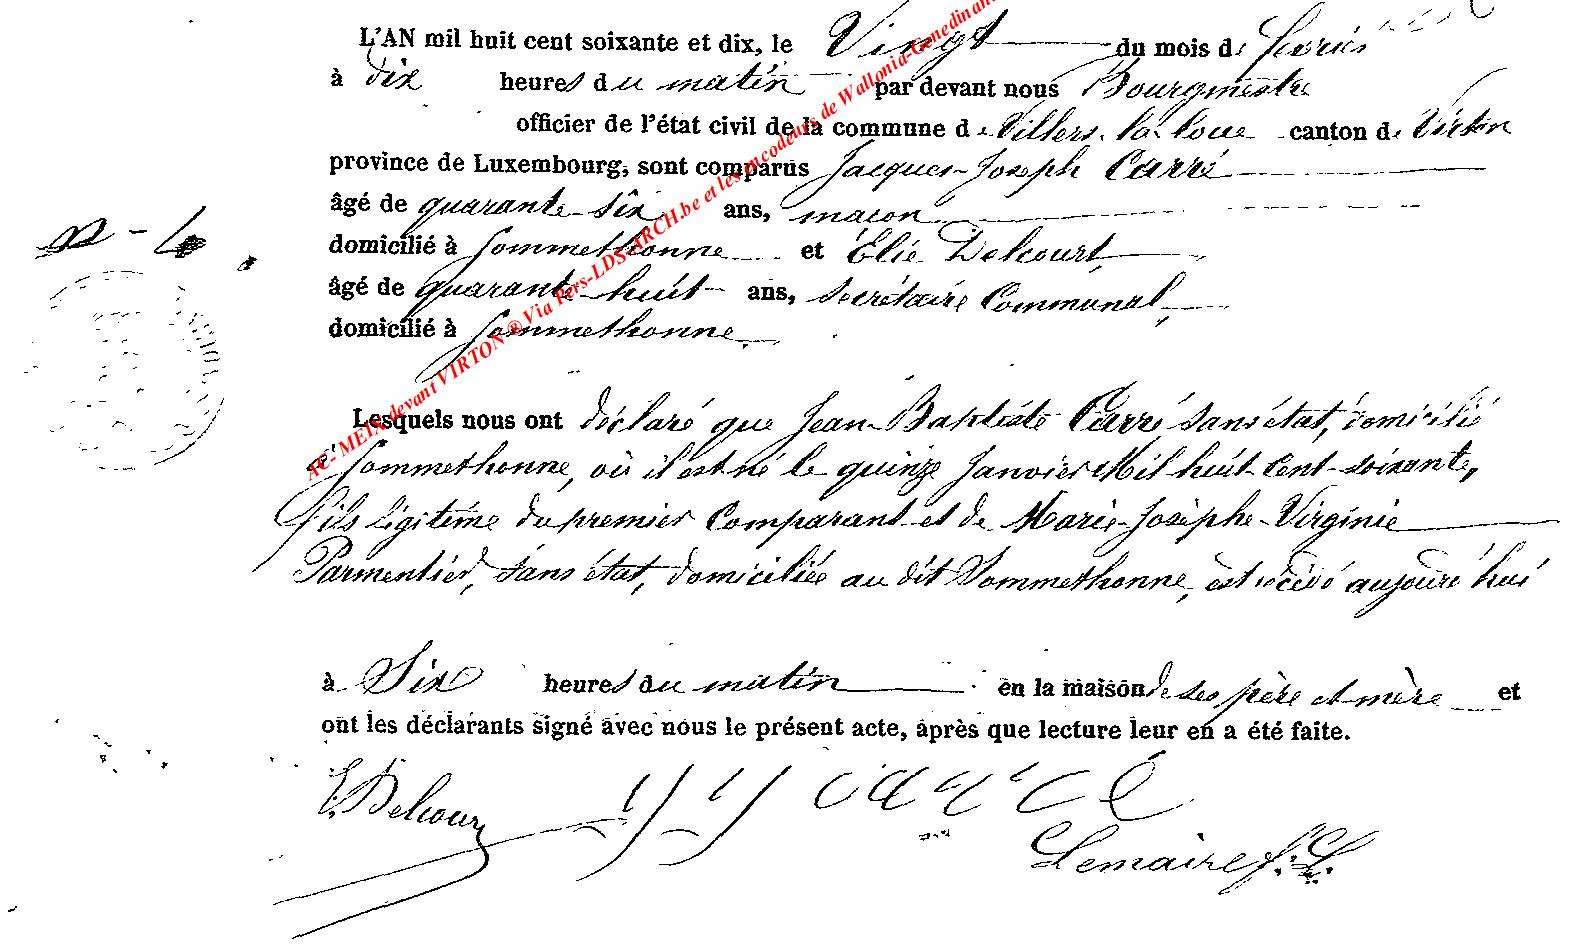 L'AN mil huit cent soixante et dix, le Vingt du mois de
à dix heures du matin par devant nous Bourgmestre
officier de l'état civil de la commune de Villers-la-loue canton de Virton
province de Luxembourg, sont comparus Jacques-Joseph Carré
âgé de quarante-six ans, maçon
domicilié à Sommethonne et Élie Delcourt,
âgé de quarante-huit ans, secrétaire Communal,
domicilié à Sommethonne.
Lesquels nous ont déclaré que Jean-Baptiste Carré sans état, domicilié
à Sommethonne, où il est né le quinze Janvier Mil huit cent soixante,
fils légitime du premier Comparant et de Marie-Josèphe-Virginie
Parmentier, sans état, domiciliée au dit Sommethonne, est décédé aujourd'hui
à Six heures du matin en la maison de ses père et mère et
ont les déclarants signé avec nous le présent acte, après que lecture leur en a été faite.
E. Delcour JJ Carré
Lemaire
AC- MEIX devant VIRTON ® Via Pers-LDS-ARCH.be et les encodeurs de Wallonia-Genedinant